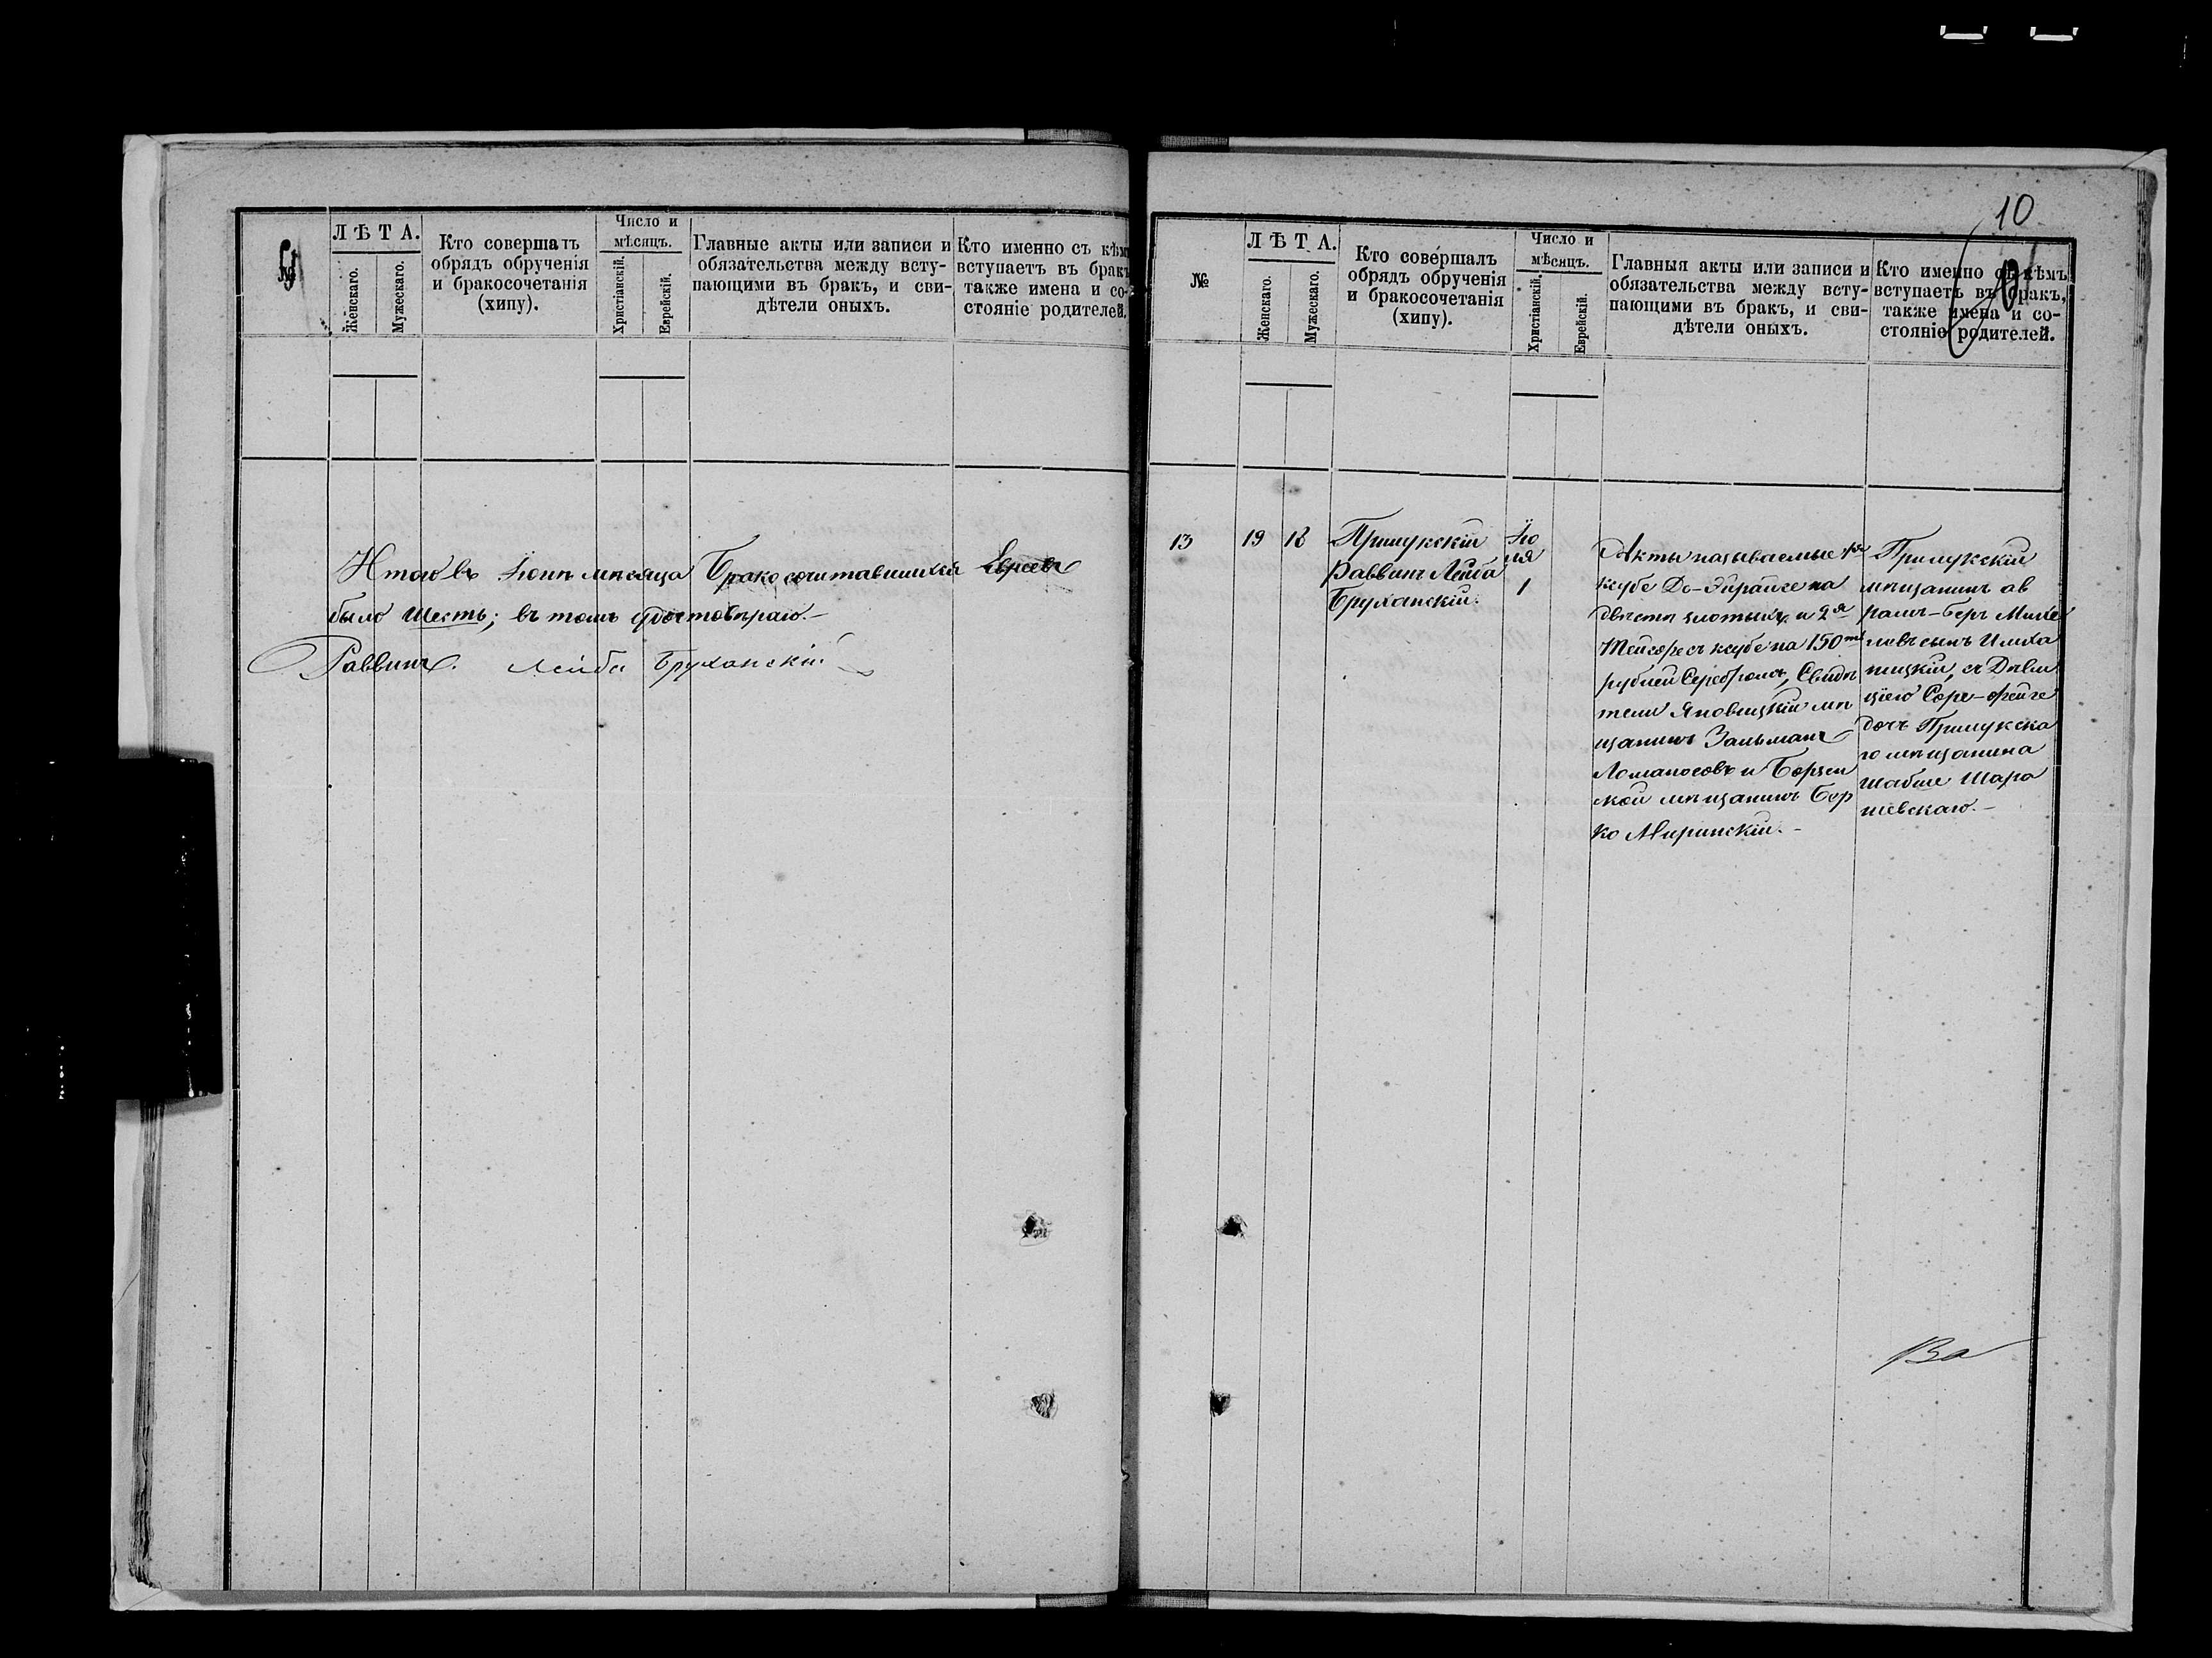 №
ЛѢТА.
Женскаго.
Мужескаго.
Кто совершалъ
обрядъ обрученія
и бракосочетанія
(хипу).
Число и
мѣсяцъ.
Христіанскій.
Еврейскій.
Главные акты или записи и
обязательства между всту-
пающими въ бракъ, и сви-
дѣтели оныхъ.
Кто именно съ кѣмъ
вступаетъ въ бракъ
также имена и со-
стояніе родителей.
Итого въ Іюнѣ мѣсяцѣ Бракосочитавшихся Евреевъ
было шесть; въ томъ удостовѣряю.–
Раввинъ Лейба Бруханскій
10
№
ЛѢТА.
Женскаго.
Мужескаго.
Кто совершалъ
обрядъ обрученія
и бракосочетанія
(хипу).
Число и
мѣсяцъ.
Христіанскій.
Еврейскій.
Главныя акты или записи и
обязательства между всту-
пающими въ бракъ, и сви-
дѣтели оныхъ.
Кто именно съ кѣмъ
вступаетъ въ бракъ,
также имена и со-
стояніе родителей.
13
19
18
Прилукскій
Раввинъ Лейба
Бруханскій.
Ію
ля
1
Акты называемые 1я
ксубе Де-Эйрайсе на
двѣсти злотыхъ и 2я
Тейсфесъ ксубе на 150ть
рублей Серебромъ, Свидѣ
тели Яновицкій мѣ
щанинъ Зальманъ
Ломаносовъ и Борзен
ской мѣщанинъ Бер
ко Миринскій.–
Прилукскій
мѣщанинъ Аб
рамъ-Беръ Михе
левъ сынъ
съ Дѣви
цѣю Соре-Фейге
дочь Прилукска
го мѣщанина
Шабше Шара
шевскаго.–